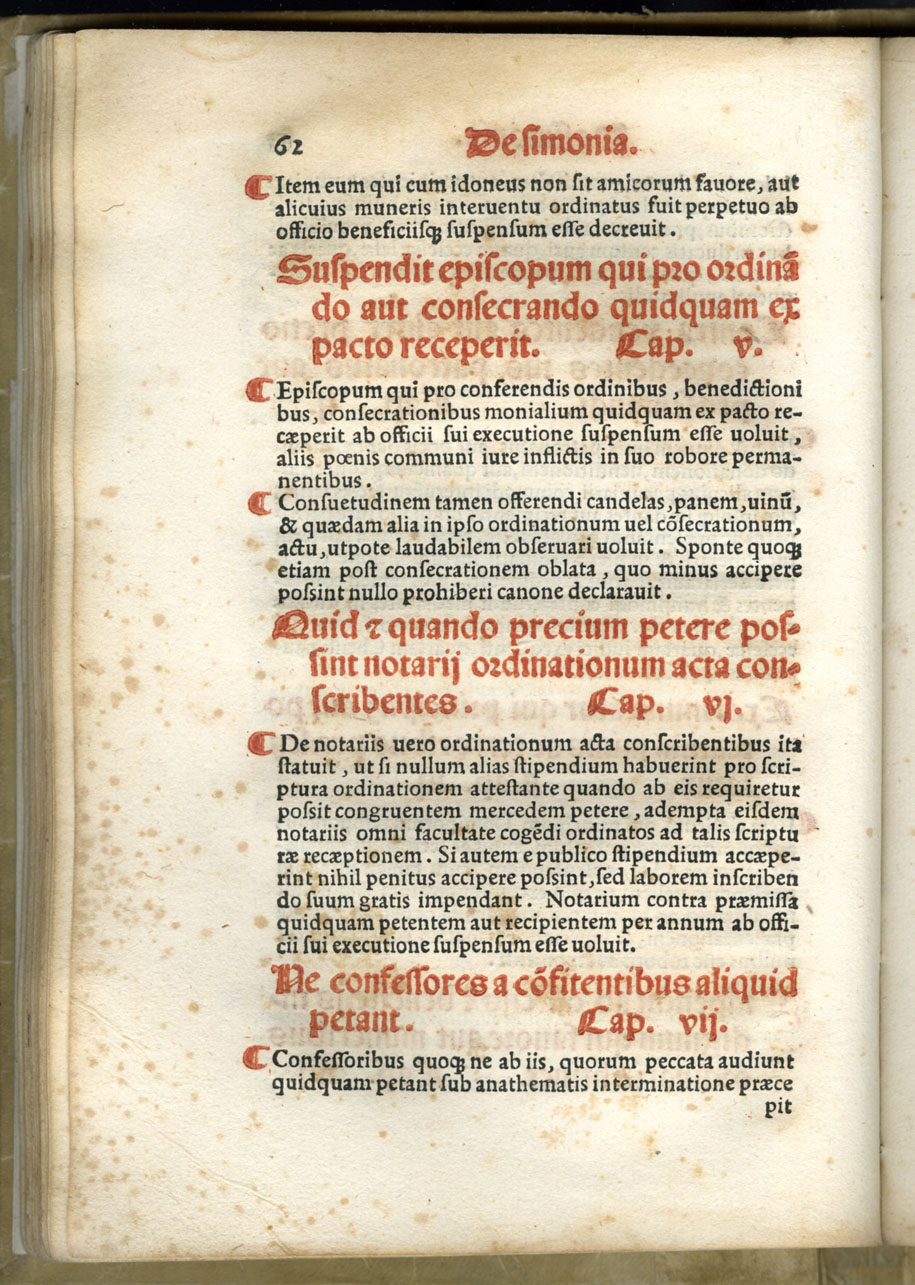 62 De simonia.
¶ Item eum qui cum idoneus non sit amicorum fauore, aut
alicuius muneris interuentu ordinatus fuit perpetuo ab
officio beneficiisqꝫ suspensum esse decreuit.
Suspendit episcopum qui pro ordinã
do aut consecrando quidquam ex
pacto receperit. Cap. v.
¶ Episcopum qui pro conferendis ordinibus, benedictioni
bus, consecrationibus monialium quidquam ex pacto re-
cæperit ab officii sui executione suspensum esse uoluit,
aliis pœnis communi iure inflictis in suo robore perma-
nentibus.
¶ Consuetudinem tamen offerendi candelas, panem, uinũ,
& quædam alia in ipso ordinationum uel cõsecrationum,
actu, utpote laudabilem obseruari uoluit. Sponte quoqꝫ
etiam post consecrationem oblata, quo minus accipere
possint nullo prohiberi canone declarauit.
Quid ⁊ quando precium petere pos-
sint notarij ordinationum acta con-
scribentes. Cap. vj.
¶ De notariis uero ordinationum acta conscribentibus ita
statuit, ut si nullum alias stipendium habuerint pro scri-
ptura ordinationem attestante quando ab eis requiretur
possit congruentem mercedem petere, adempta eisdem
notariis omni facultate cogẽdi ordinatos ad talis scriptu
ræ recæptionem. Si autem e publico stipendium accæpe-
rint nihil penitus accipere possint, sed laborem inscriben
do suum gratis impendant. Notarium contra præmissa
quidquam petentem aut recipientem per annum ab offi-
cii sui executione suspensum esse uoluit.
Ne confessores a cõfitentibus aliquid
petant. Cap. vij.
¶ Confessoribus quoqꝫ ne ab iis, quorum peccata audiunt
quidquam petant sub anathematis interminatione præce
pit